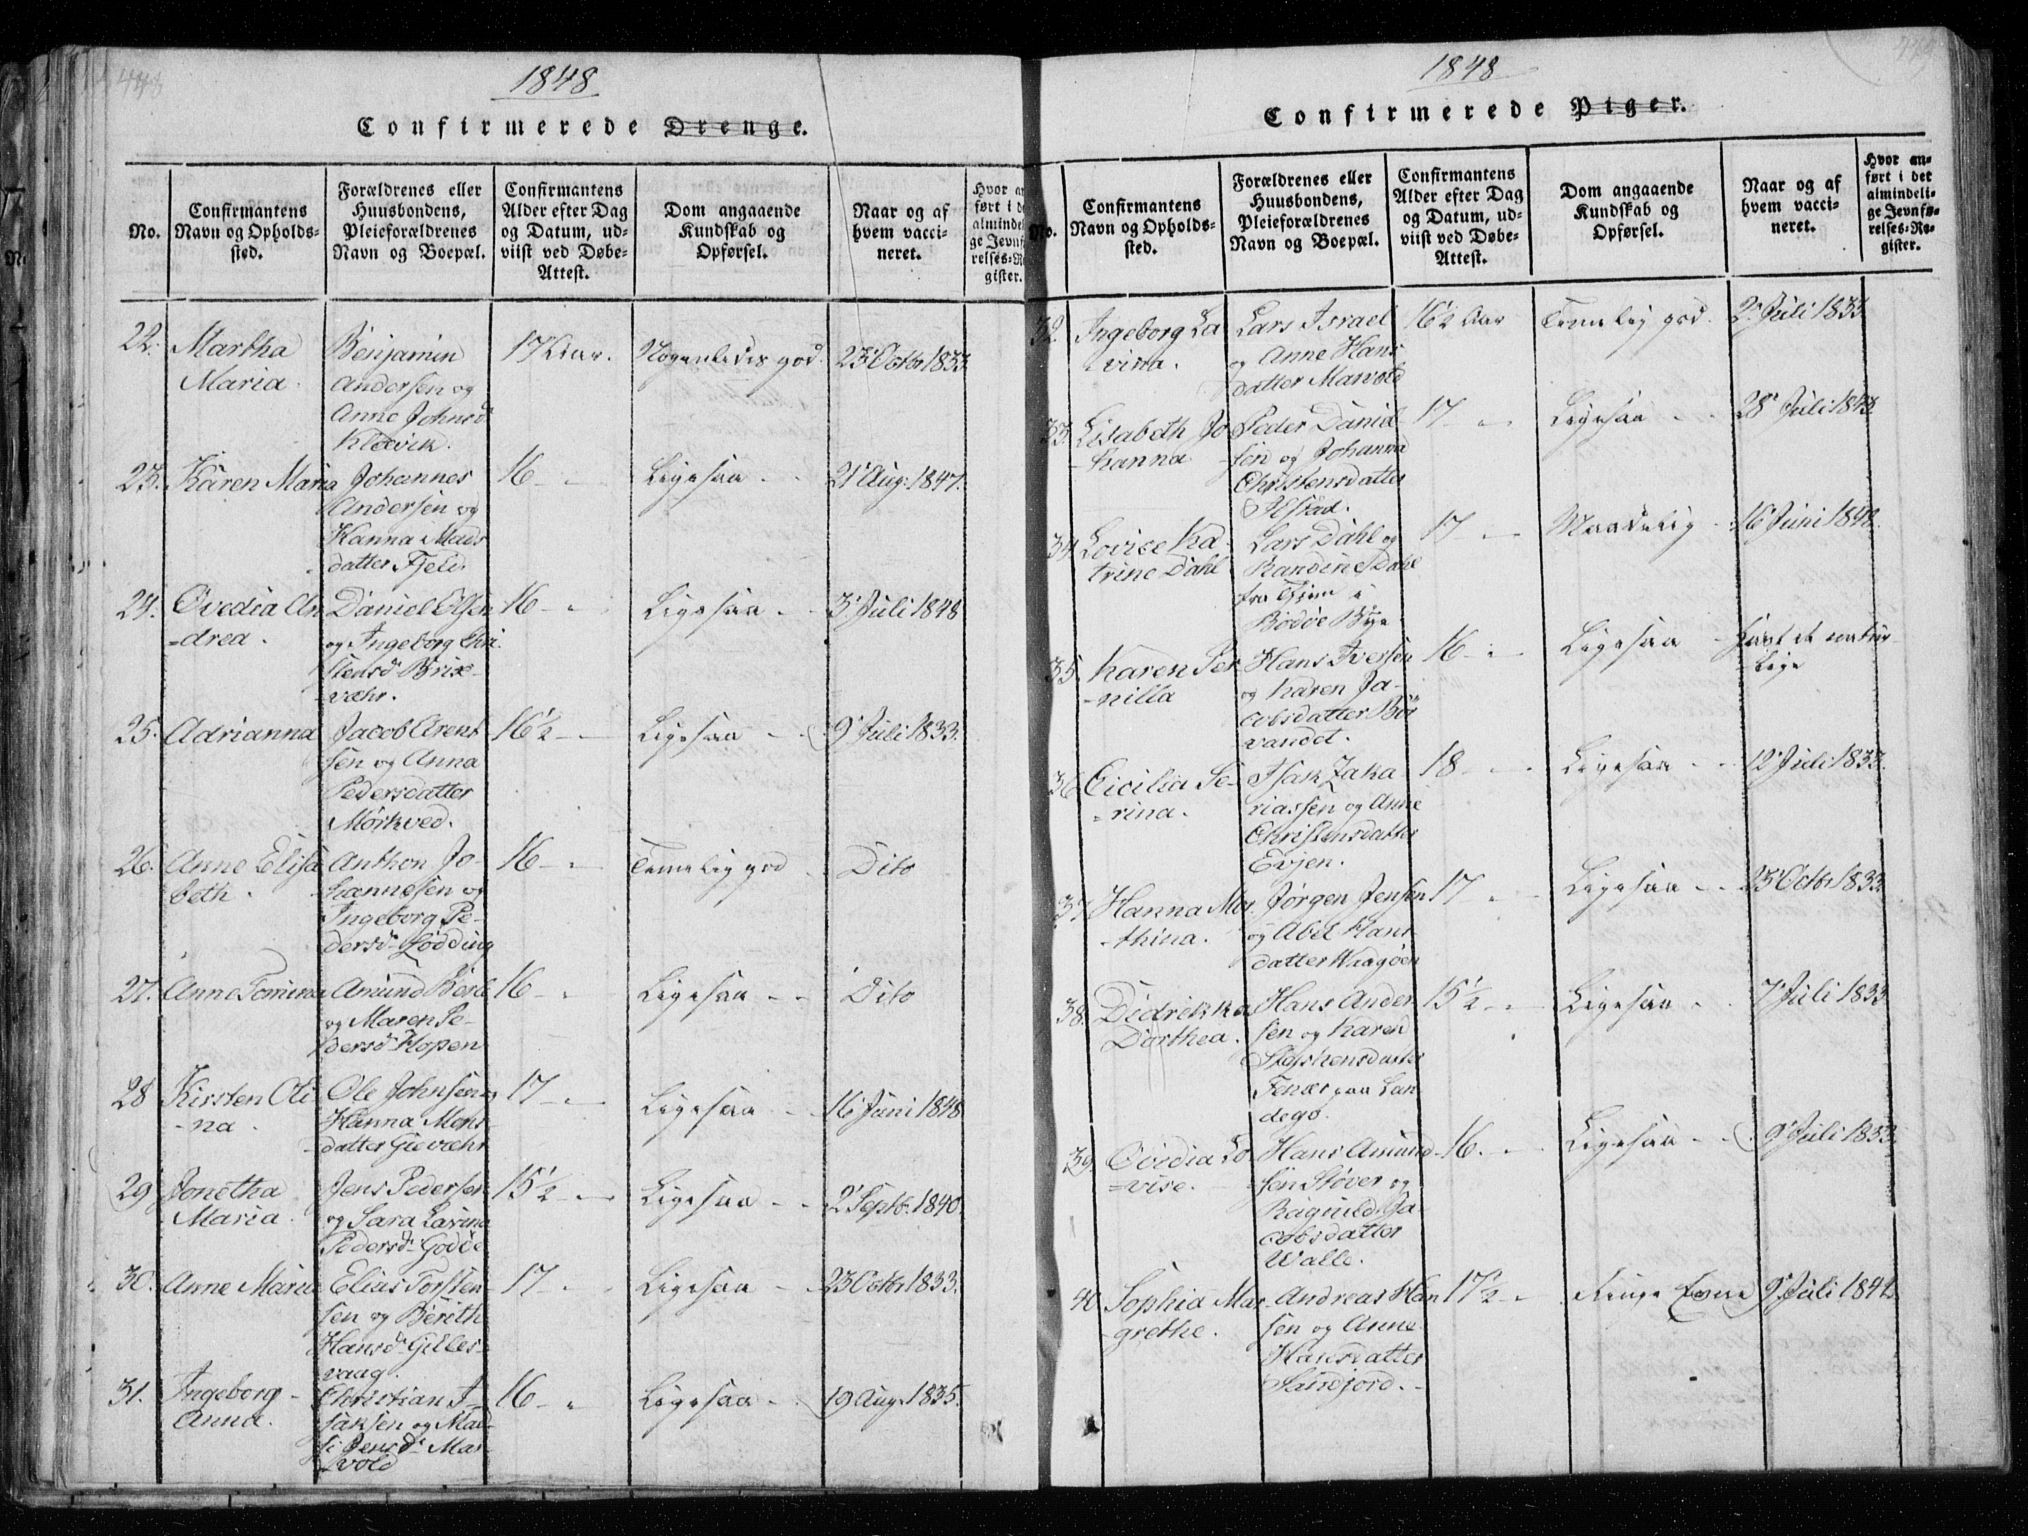 1848
Confirmerede Drenge.
No.
Confirmantens
Navn og Opholds-
sted.
Forældrenes eller
Huusbondens,
Pleieforældrenes
Navn og Boepæl.
Confirmantens
Alder efter Dag
og Datum, ud-
viist ved Døbe-
Attest.
Dom angaaende
Kundskab og
Opførsel.
Naar og af
hvem vacci-
neret.
22.
Martha
Maria.
Benjamin
Andersen og
Anne Johnsd
Kløvik.
17 Aar.
Nogenledes god.
23 Octbr 1833
23.
Karen Maria
Johannes
Andersen og
Hanna Mads
datter Fjele
16
Ligesaa
21 Aug. 1847.
24.
Ovedia An
=drea.
Daniel Olsen
og Ingeborg Chri
stensd Brixe-
væhr.
16
Ligesaa
3 Juli 1848
25.
Adrianna
Jacob Arent
sen og Anna
Pedersdatter
Mørkved.
16½
Ligesaa
9 Juli 1833.
26.
Anne Elisa
beth.
Anthon Jo-
hannesen og
Ingeborg Pe-
dersd Lødding
16
Temelig god
Dito
27.
Anne Tomina
Amund Bøe
og Maren Pe-
dersd Hopen
16
Ligesaa
Dito
28
Kirsten Oli
-na.
Ole Johnsen og
Hanna Mons
datter Gievæhr
17
Ligesaa
16 Juni 1848
29
Jonetha
Maria.
Jens Pedersen
og Sara Lavina
Pedersd Godøe
15½
Ligesaa
2 Septb. 1840.
30.
Anne Maria
Elias Torsten
sen og Berith
Hansd Gilles-
vaag.
17
Ligesaa
23 Octbr 1833.
31.
Ingeborg
Anna.
Christian I-
saksen og Mar-
Jensd Mar-
vold
16
Ligesaa
19 Aug. 1835.
1848
Confirmerede Piger.
No.
Confirmantens
Navn og Opholds-
sted.
Forældrenes eller
Huusbondens,
Pleieforældrenes
Navn og Boepæl.
Confirmantens
Alder efter Dag
og Datum, ud-
viist ved Døbe-
Attest.
Dom angaaende
Kundskab og
Opførsel.
Naar og af
hvem vacci-
neret.
Hvor an-
ført i det
almindeli-
ge Jevnfø-
relses-Re-
gister.
32.
Ingeborg La
vina.
Lars Israel
og Anne Hans
datter Marvold
16½ Aar
Temelig god.
2 Juli 1833
33.
Elisabeth Jo
-hanna
Peder Daniel
sen og Johanna
Christensdatter
Alstad.
17
Ligesaa
28 Juli 1843
34
Lovise Ka
trine Dahl
Lars Dahl og
Randine Dahl
fra
Bodøe Bye
17
Maadelig
16 Juni 1848.
35.
Karen Per
-nilla
Hans Iversen
og Karen Ja-
cobsdatter Bør
vandet.
16
Ligesaa
havt de natur
-lige
36
Cicilia Se-
=rina.
Isak Zaka
riassen og Anne
Christensdatter
Evjen.
18
Ligesaa
12 Juli 1833.
37
Hanna Ma-
-thina.
Jørgen Jensen
og Abel Hans-
datter Waagøen
17
Ligesaa
23 Octbr 1833
38.
Didrikka
Dorthea.
Hans Ander
sen og Karen
Stephensdatter
Fenæs paa Lan
dego.
15½
Ligesaa
7 Juli 1833
39.
Ovidia Lo
=vise.
Hans Amund-
sen Støver og
Ragnild Ja-
cobsdatter
Walle.
16.
Ligesaa
9 Juli 1833.
40
Sophia Mar-
-grethe.
Andreas Han
sen og Anne
Hansdatter
Sandjord.
17½
Ringe Evne
9 Juli 1842